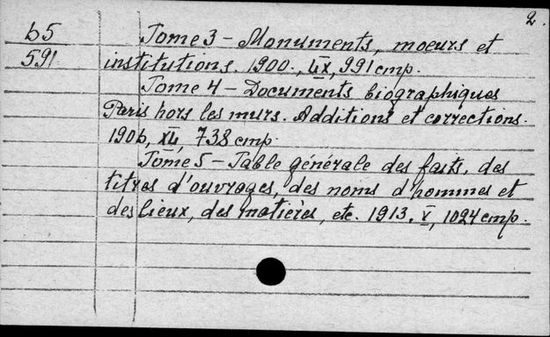 2.
65
591
Tome 3 – Monuments, moeurs et
institutions. 1900., LIX, 991 стр.
Tome 4 – Documents biographiques
Paris hors les murs. Additions et corrections.
1906, XLI, 738 стр
Tome 5 – Table générale des faits, des
titres d'ouvrages, des noms d'hommes et
des lieux, des matières, etc. 1913. V, 1024 стр.